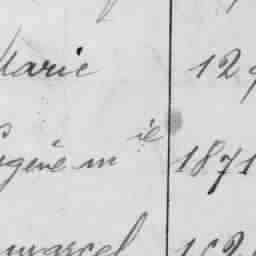 Marie 12
ugène mie 1871
marcel 182